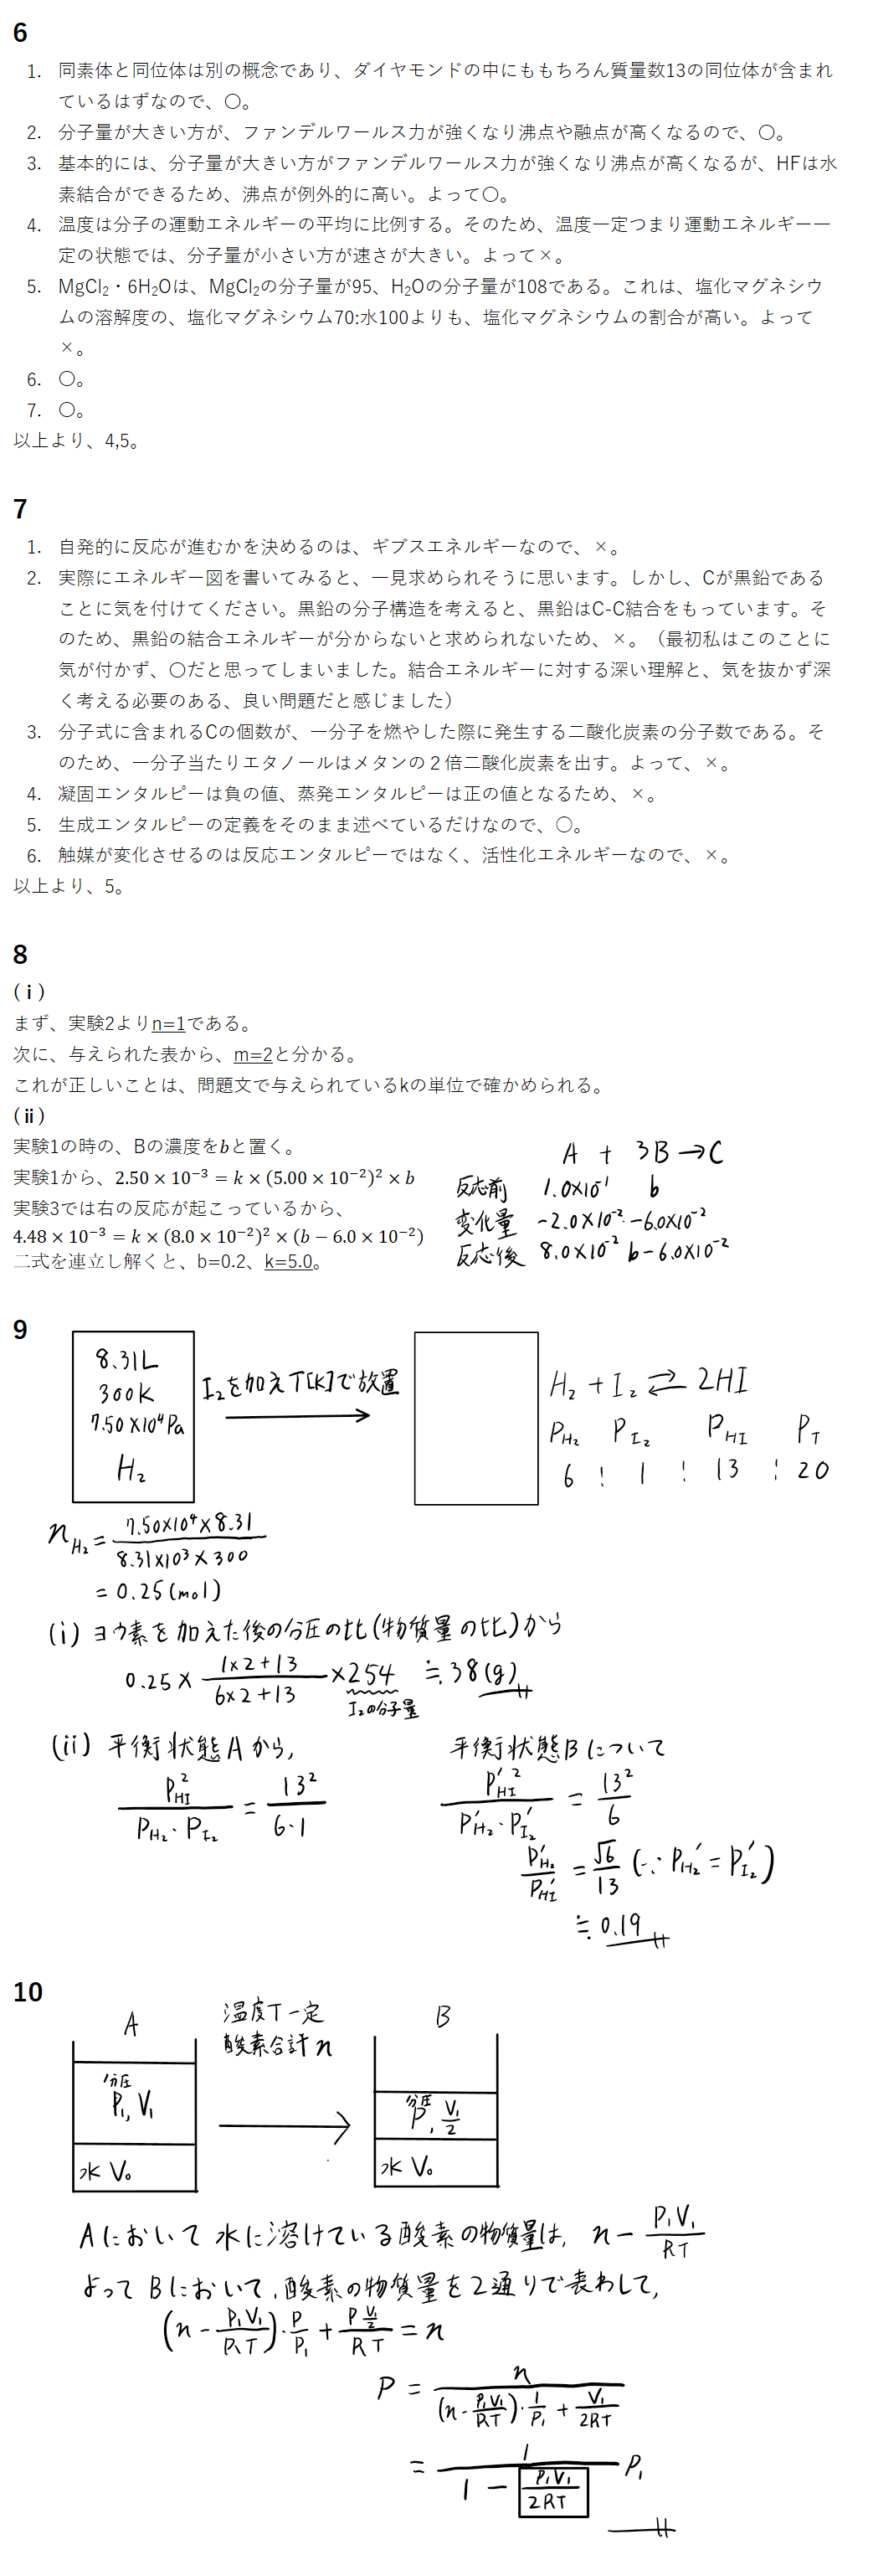 6
1. 同素体と同位体は別の概念であり、ダイヤモンドの中にももちろん質量数13の同位体が含まれ
ているはずなので、〇。
2. 分子量が大きい方が、ファンデルワールス力が強くなり沸点や融点が高くなるので、〇。
3. 基本的には、分子量が大きい方がファンデルワールス力が強くなり沸点が高くなるが、HFは水
素結合ができるため、沸点が例外的に高い。よって〇。
4. 温度は分子の運動エネルギーの平均に比例する。そのため、温度一定つまり運動エネルギー一
定の状態では、分子量が小さい方が速さが大きい。よって×。
5. MgCl₂・6H₂Oは、MgCl₂の分子量が95、H₂Oの分子量が108である。これは、塩化マグネシウ
ムの溶解度の、塩化マグネシウム70:水100よりも、塩化マグネシウムの割合が高い。よって
×。
6. 〇。
7. 〇。
以上より、4,5。
7
1. 自発的に反応が進むかを決めるのは、ギブスエネルギーなので、×。
2. 実際にエネルギー図を書いてみると、一見求められそうに思います。しかし、Cが黒鉛である
ことに気を付けてください。黒鉛の分子構造を考えると、黒鉛はC-C結合をもっています。そ
のため、黒鉛の結合エネルギーが分からないと求められないため、×。（最初私はこのことに
気が付かず、〇だと思ってしまいました。結合エネルギーに対する深い理解と、気を抜かず深
く考える必要のある、良い問題だと感じました）
3. 分子式に含まれるCの個数が、一分子を燃やした際に発生する二酸化炭素の分子数である。そ
のため、一分子当たりエタノールはメタンの２倍二酸化炭素を出す。よって、×。
4. 凝固エンタルピーは負の値、蒸発エンタルピーは正の値となるため、×。
5. 生成エンタルピーの定義をそのまま述べているだけなので、〇。
6. 触媒が変化させるのは反応エンタルピーではなく、活性化エネルギーなので、×。
以上より、5。
8
(ⅰ)
まず、実験2よりn=1である。
次に、与えられた表から、m=2と分かる。
これが正しいことは、問題文で与えられているkの単位で確かめられる。
(ⅱ)
実験1の時の、Bの濃度をbと置く。
実験1から、2.50 × 10⁻³ = k × (5.00 × 10⁻²)² × b
実験3では右の反応が起こっているから、
4.48 × 10⁻³ = k × (8.0 × 10⁻²)² × (b − 6.0 × 10⁻²)
二式を連立し解くと、b=0.2、k=5.0。
A + 3B → C
反応前 1.0×10⁻¹ b
変化量 -2.0×10⁻² -6.0×10⁻²
反応後 8.0×10⁻² b-6.0×10⁻²
9
8.31L
300K
7.50×10⁴Pa
H₂
I₂を加えT[K]で放置
H₂ + I₂ ⇄ 2HI
P_H₂ P_I₂ P_HI P_T
6 : 1 : 13 : 20
n_H₂ = 7.50×10⁴×8.31 / 8.31×10³×300
= 0.25(mol)
(i) ヨウ素を加えた後の分圧の比(物質量の比)から
0.25 × (1×2+13)/(6×2+13) × 254 ≒ 38(g)
I₂の分子量
(ii) 平衡状態Aから,
P_HI² / P_H₂・P_I₂ = 13² / 6・1
平衡状態Bについて
P'_HI² / P'_H₂・P'_I₂ = 13² / 6
P'_H₂ / P'_HI = √6 / 13 (∵ P_H₂' = P_I₂')
≒ 0.19
10
A
温度T一定
酸素合計n
B
分圧
P₁, V₁
水 V₀
分圧
P, V₁/2
水 V₀
Aにおいて水に溶けている酸素の物質量は, n - P₁V₁/RT
よってBにおいて,酸素の物質量を2通りで表わして,
(n - P₁V₁/RT)・P/P₁ + P V₁/2 / RT = n
P = n / ((n - P₁V₁/RT)・1/P₁ + V₁/2RT)
= 1 / (1 - P₁V₁/2RT) P₁